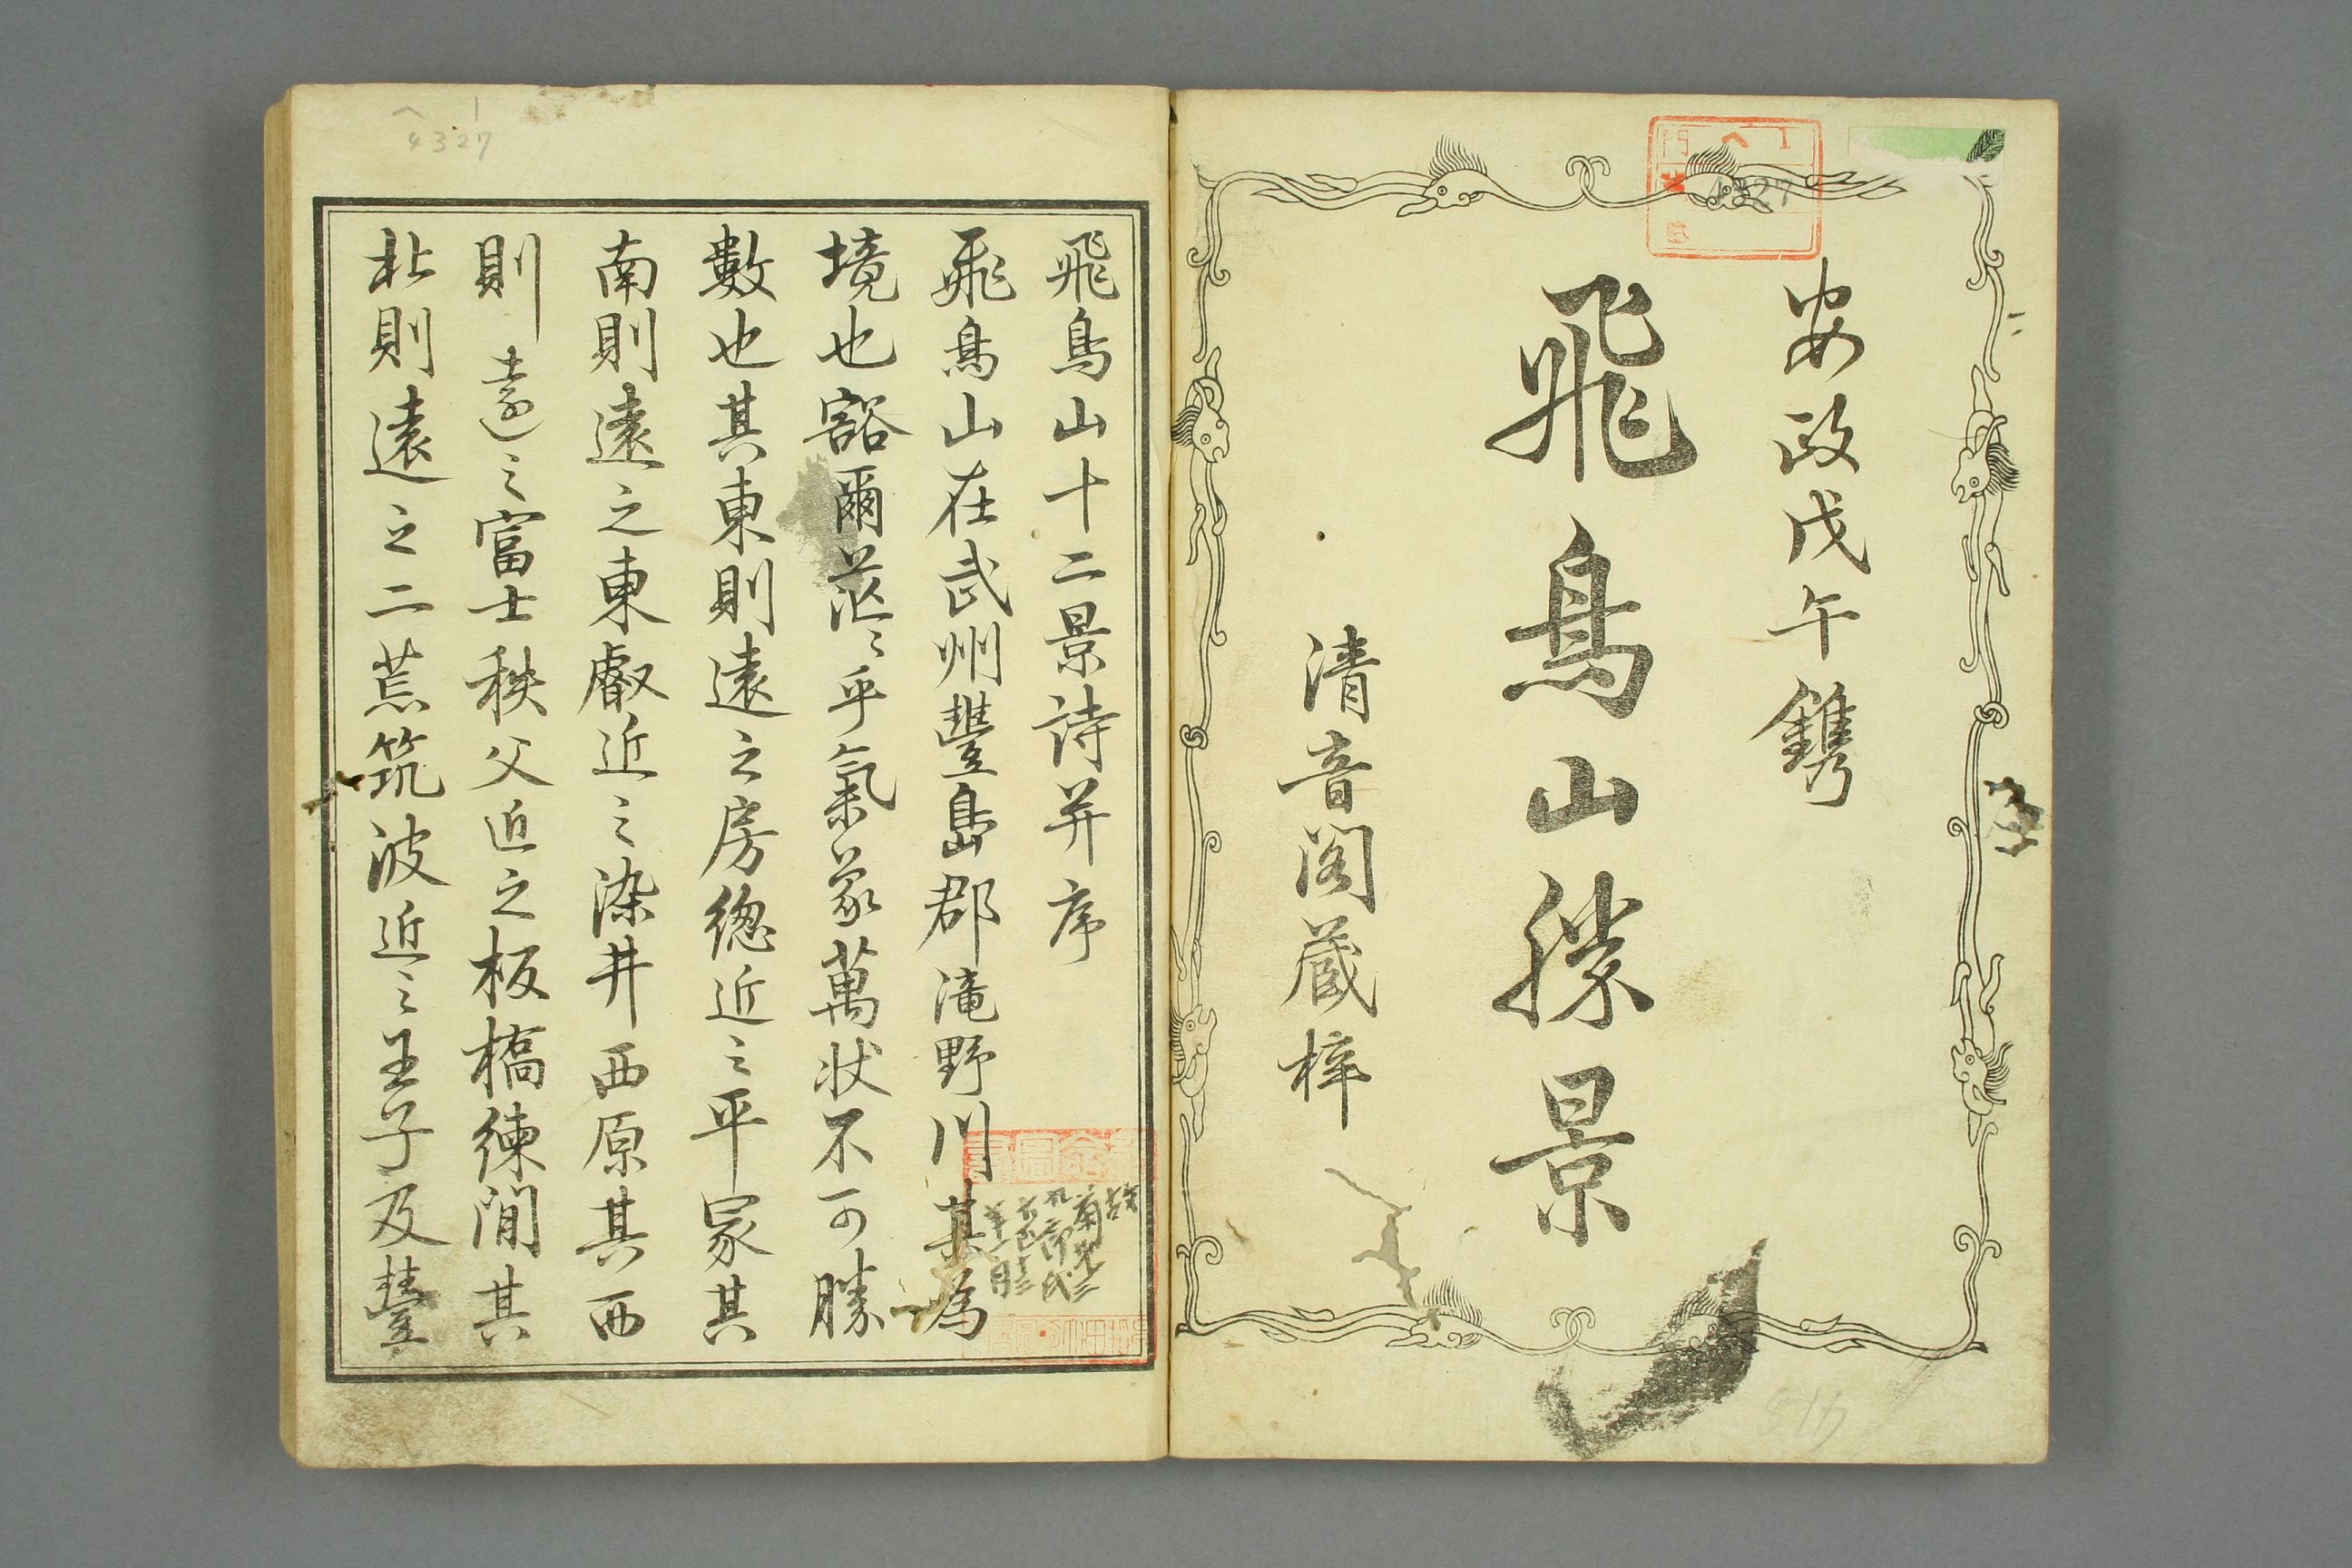 安政戊午鐫
飛鳥山勝景
清音閣蔵梓
門 へ 1
4327
へ 1
4327
飛鳥山十二景詩并序
飛鳥山在武州豐島郡滝野川其為
境也豁爾茫〻乎氣象萬状不可勝
數也其東則遠之房總近之平冢其
南則遠之東叡近之染井西原其西
則遠之富士秩父近之板橋練間其
北則遠之二荒筑波近之王子及豐